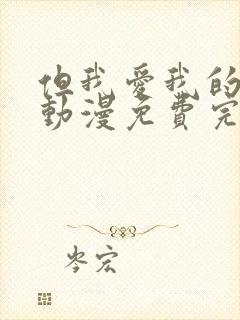 但我愛我的
動漫免費完
岑宏